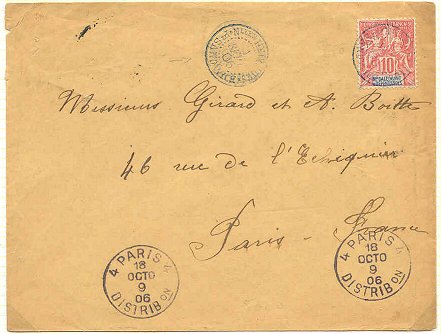 10
Messieurs Girard et A. Boitte
46 rue de l'Echiquier
Paris - France
4 PARIS 4
18
OCTO
9
06
DISTRIBON
4 PARIS 4
18
OCTO
9
06
DISTRIBON